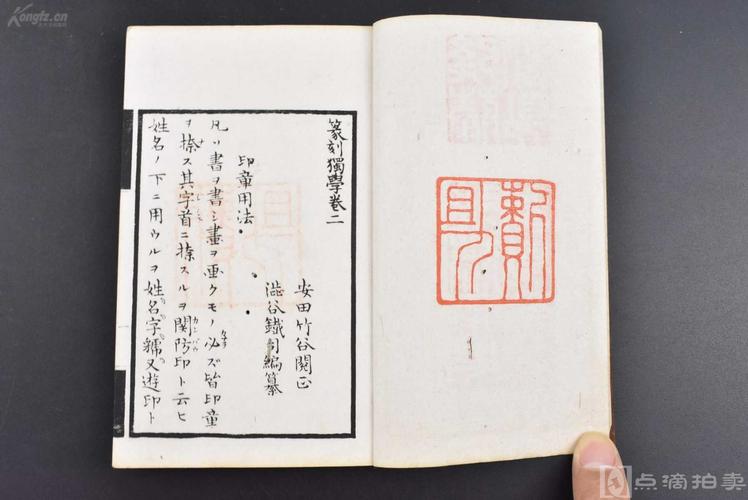 Kongfz.cn
篆刻獨學卷二
安田竹谷閲正
澁谷鐵司編纂
印章用法
凡ソ書ヲ書シ畫ヲ画クモノ必ズ皆印章
ヲ捺ス其字首ニ捺スルヲ関防印ト云ヒ
姓名ノ下ニ用ウルヲ姓名字號又遊印ト
点滴拍卖